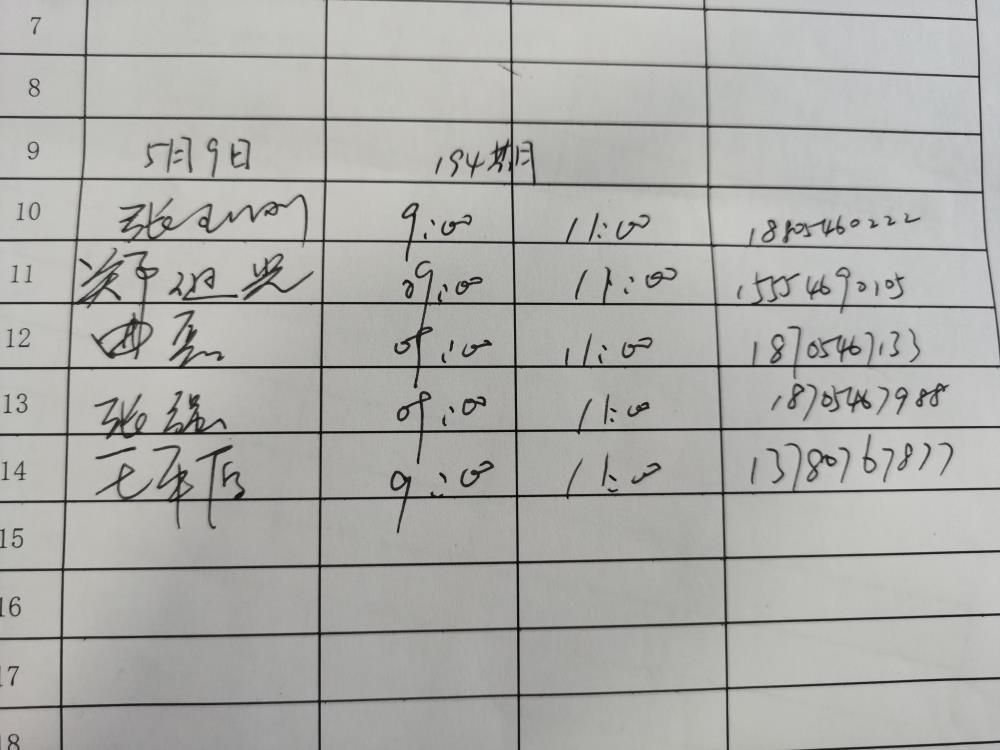 7
8
9 5月9日 194期
10 张 9:00 11:00 18805460222
11 09:00 11:00 15554690105
12 曲磊 09:00 11:00 18705467133
13 张强 09:00 11:00 18705467988
14 9:00 11:00 13780767877
15
16
17
18